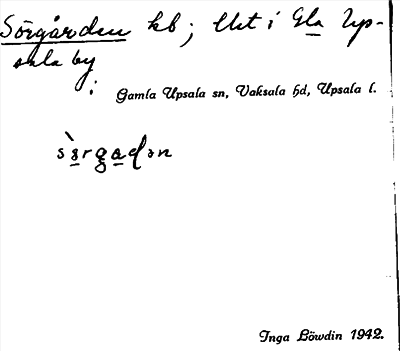 Sörgården kb; Ust i Gla Up-
sala by
i Gamla Upsala sn, Vaksala hd, Upsala l.
Inga Löwdin 1942.